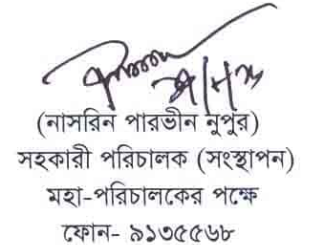 (নাসরিন পারভীন নুপুর)
সহকারী পরিচালক (সংস্থাপন)
মহা-পরিচালকের পক্ষে
ফোন- ৯১৩৫৫৬৮